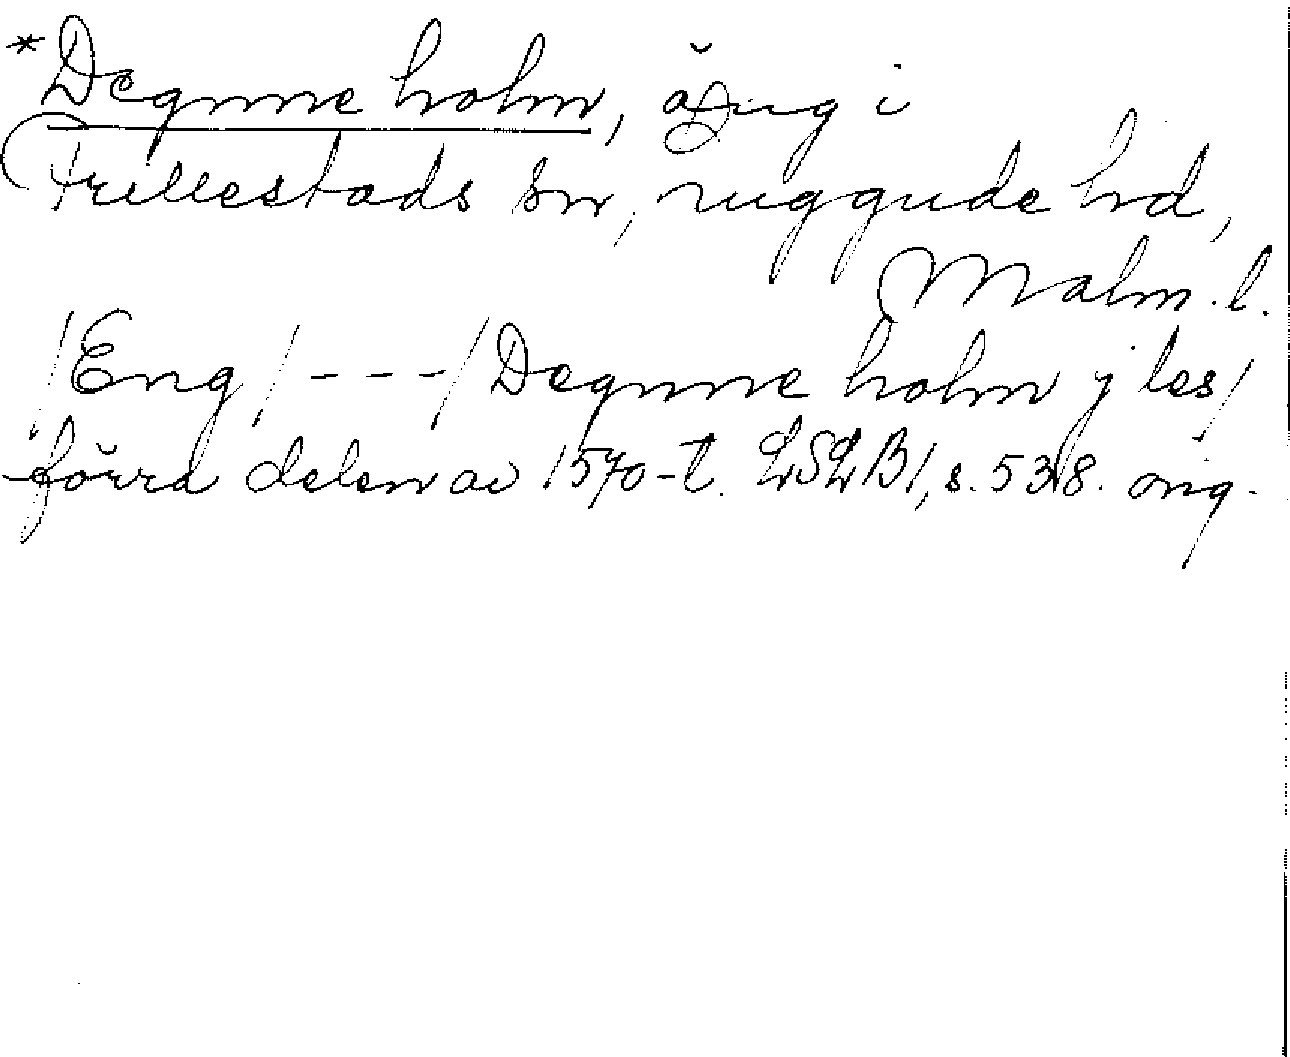 *Degnne holm, äng i
Frillestads sn, luggude hd,
Malm. l.
/Eng/---/Degnne holm j les/
förra delen av 1570-t. LSLB1, s. 538. orig.